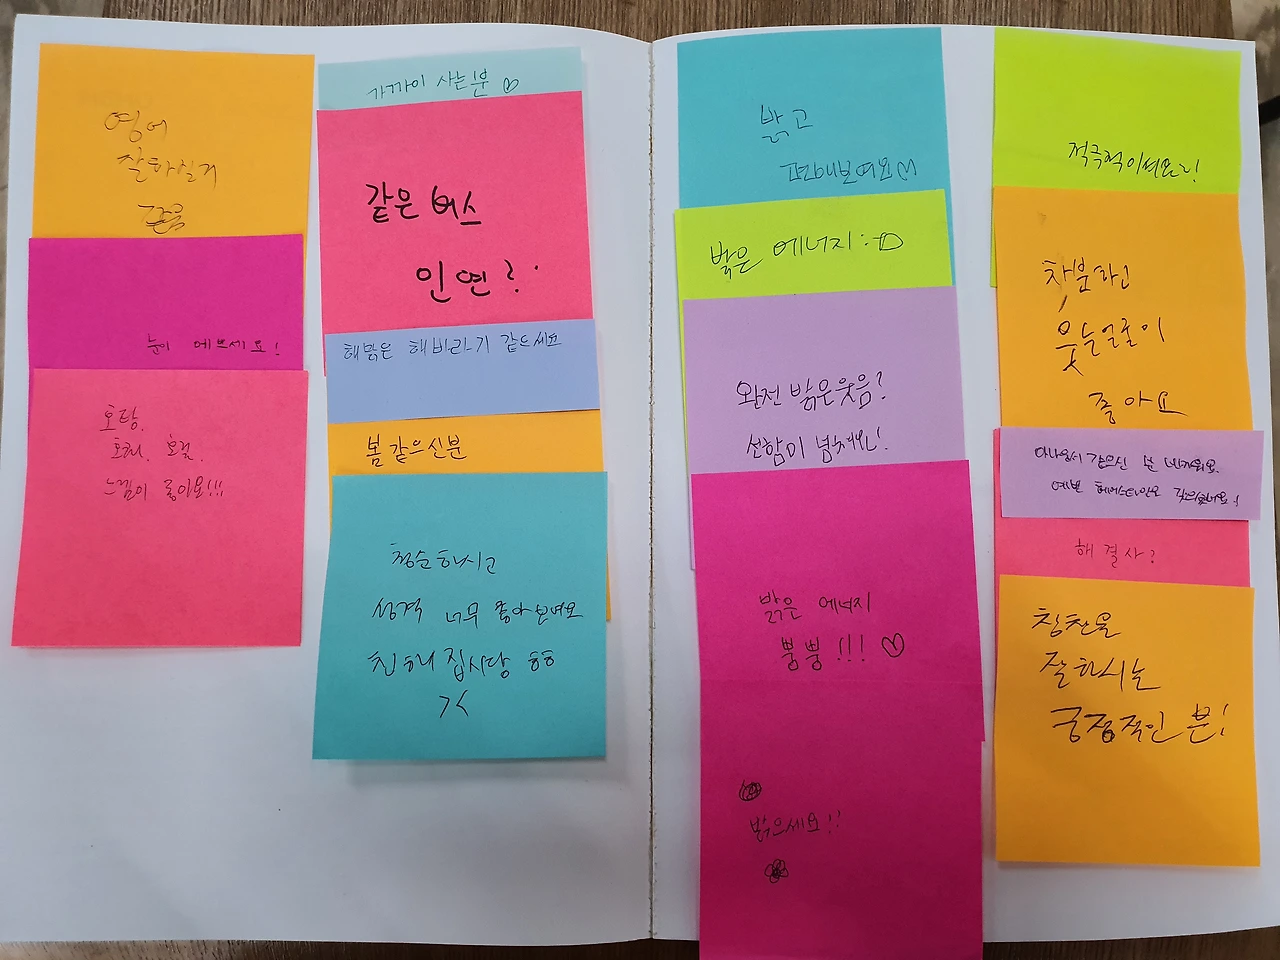 영어
잘하실거
같음
눈이 예쁘세요!
호탕.
호쾌. 호걸.
느낌이 좋아요!!!
가까이 사는분 ♡
같은 버스
인연?
해맑은 해바라기 같드세프
봄 같으신분
청순하시고
성격 너무 좋아보여요
친해집시당 ㅎㅎ
><
밝고
편해보여요♡
밝은 에너지:-D
완전 밝은웃음?
선함이 넘쳐요!
밝은 에너지
뿡뿡!!! ♡
밝으세요!!
적극적이셔요!
차분하고
웃는얼굴이
좋아요
아나운서 같으신 분
예쁜
해결사?
칭찬을
잘하시는
긍정적인 분!